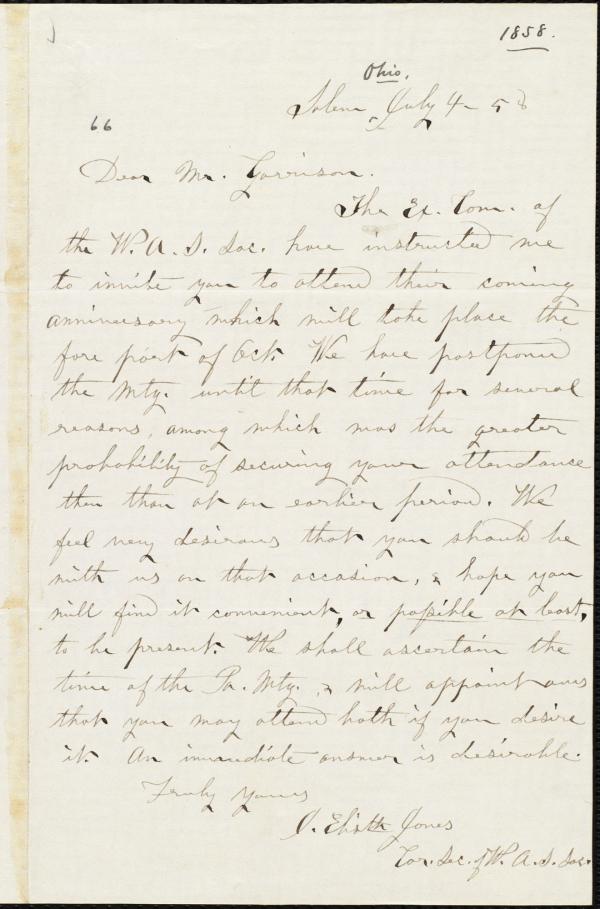 1858.
Ohio.
Salem, July 4 - 58
66
Dear Mr. Garrison.
The Ex. Com. of
the W. A. S. Soc. have instructed me
to invite you to attend their coming
anniversary which will take place the
fore part of Oct. We have postponed
the Mtg. until that time for several
reasons, among which was the greater
probability of securing your attendance
then than at an earlier period. We
feel very desirous that you should be
with us on that occasion, & hope you
will find it convenient, or possible at least,
to be present. We shall ascertain the
time of the Pa. Mtg. & will appoint ours
that you may attend both if you desire
it. An immediate answer is desirable.
Truly yours
J. Elizth Jones
Cor. Sec. of W. A. S. Soc.